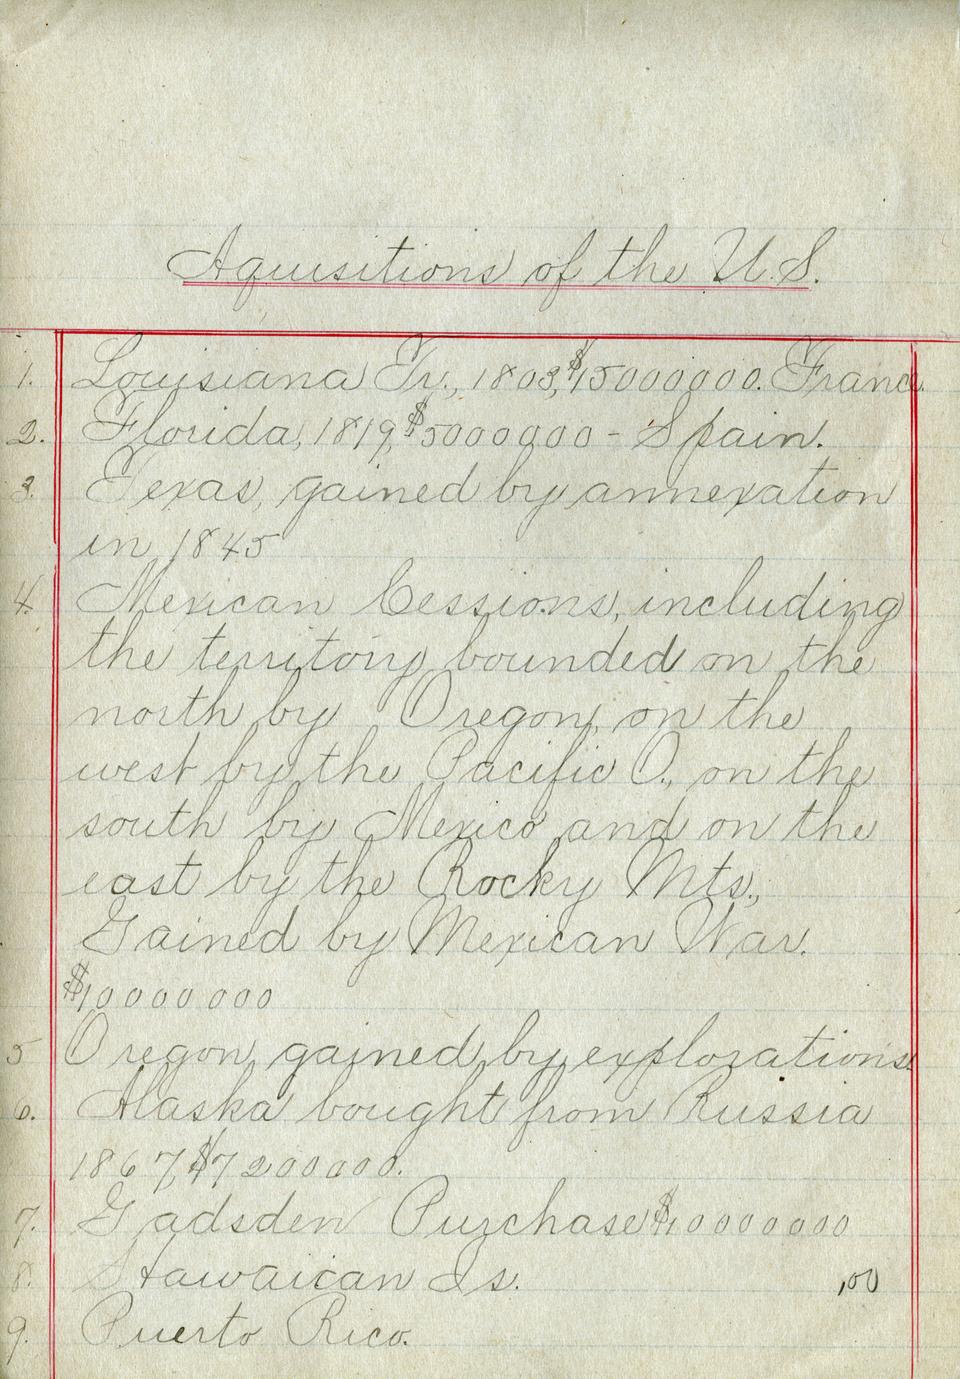 Aquisitions of the U.S.
1. Louisiana Tr., 1803, $15000000. France
2. Florida, 1819, $5000000 - Spain.
3. Texas, gained by annexation
in 1845
4. Mexican Cessions, including
the territory bounded on the
north by Oregon, on the
west by the Pacific O., on the
south by Mexico and on the
east by the Rocky Mts.,
Gained by Mexican War.
$10000000
5 Oregon, gained by explorations.
6. Alaska bought from Russia
1867, $7200000.
7. Gadsden Purchase $10000000
8. Hawaiican Is. ,00
9. Puerto Rico.